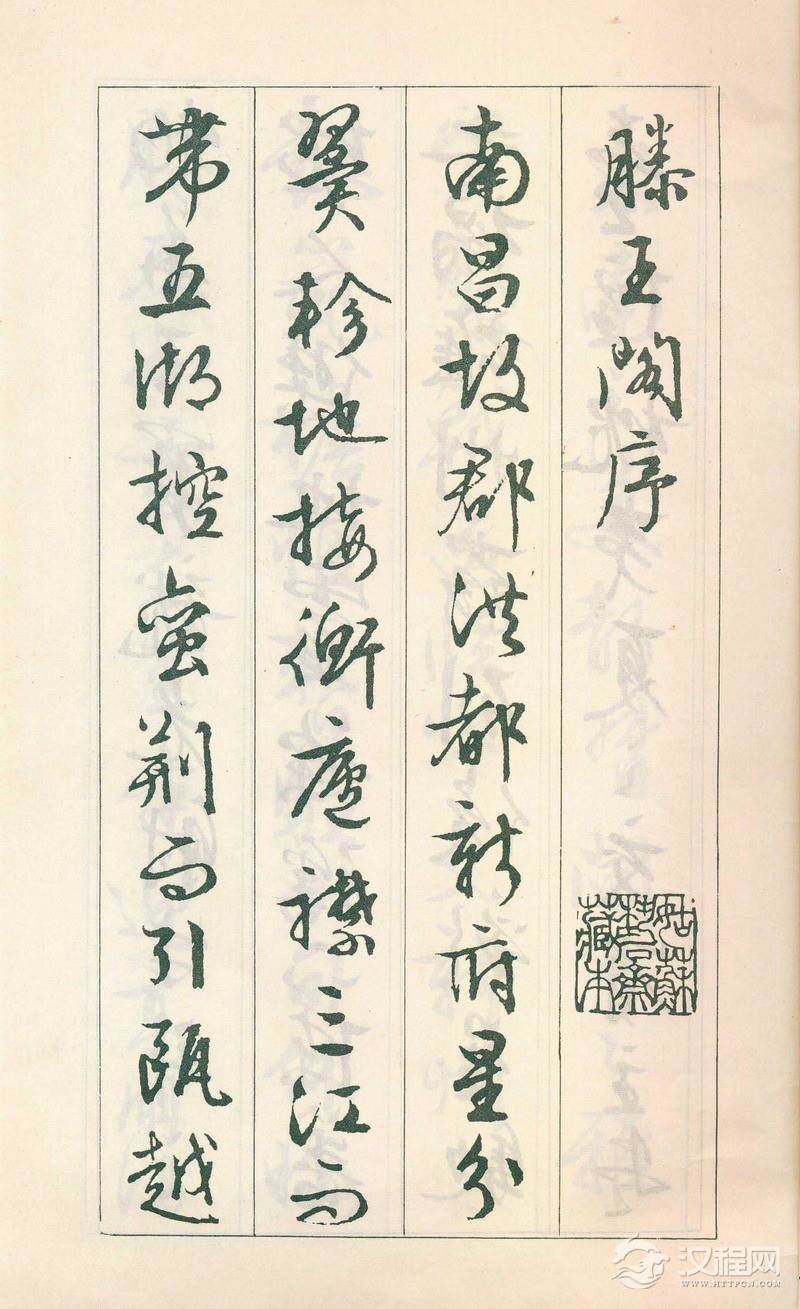 滕王閣序
南昌故郡洪都新府星分
翼軫地接衡廬襟三江而
帶五湖控蠻荆而引甌越
姑蘇
藏本
汉程网
WWW.HTTPCN.COM